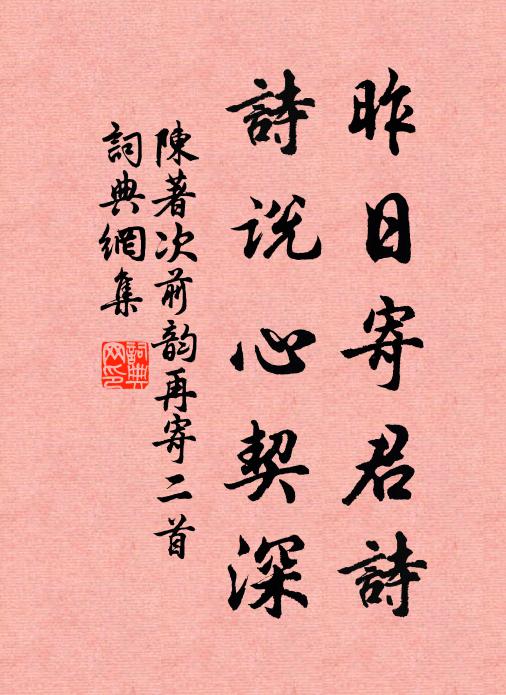 昨日寄君詩
詩説心契深
陳著次前韵再寄二首
詞典網集
詞典网印